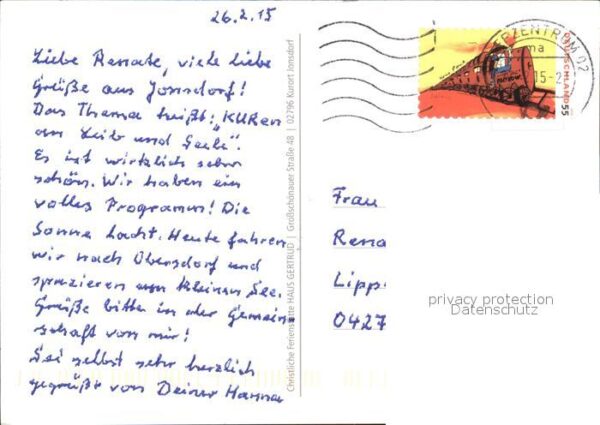 26.2.15
Liebe Renate, viele liebe
Grüße aus Jonsdorf!
Das Thema heißt: „KURen
an Leib und Seele".
Es ist wirklich sehr
schön. Wir haben ein
volles Programm! Die
Sonne lacht. Heute fahren
wir nach Obersdorf und
spazieren am kleinen See.
Grüße bitte in der Gemein-
schaft von mir!
Sei selbst sehr herzlich
gegrüßt von Deiner Hanna
Christliche Ferienstätte HAUS GERTRUD | Großschönauer Straße 48 | 02796 Kurort Jonsdorf
DEUTSCHLAND 55
ZENTRUM 02
15-2
Frau
Rena
Lipp
0427
privacy protection
Datenschutz